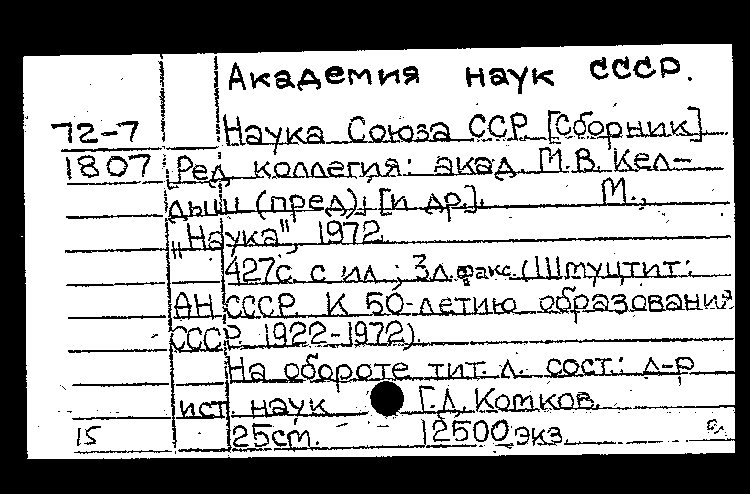 Академия наук СССР.
72-7 Наука Союза ССР [Сборник]
1807 Ред коллегия: акад. М.В. Кел-
дыш (пред); [и др.]. М.,
„Наука", 1972.
427с. с ил.; 3л.факс. (Шмуцтит:
АН СССР. К 50-летию образования
СССР. 1922-1972).
На обороте тит. л. сост.: д-р
ист. наук Г.Д. Комков.
15 25см. 12500 экз.